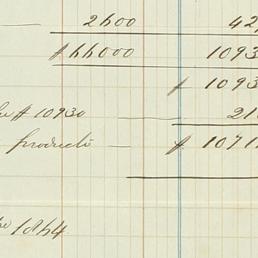 2600 42
$ 66000 1093
$ 1093
$ 10930 21
products $ 1071
1864